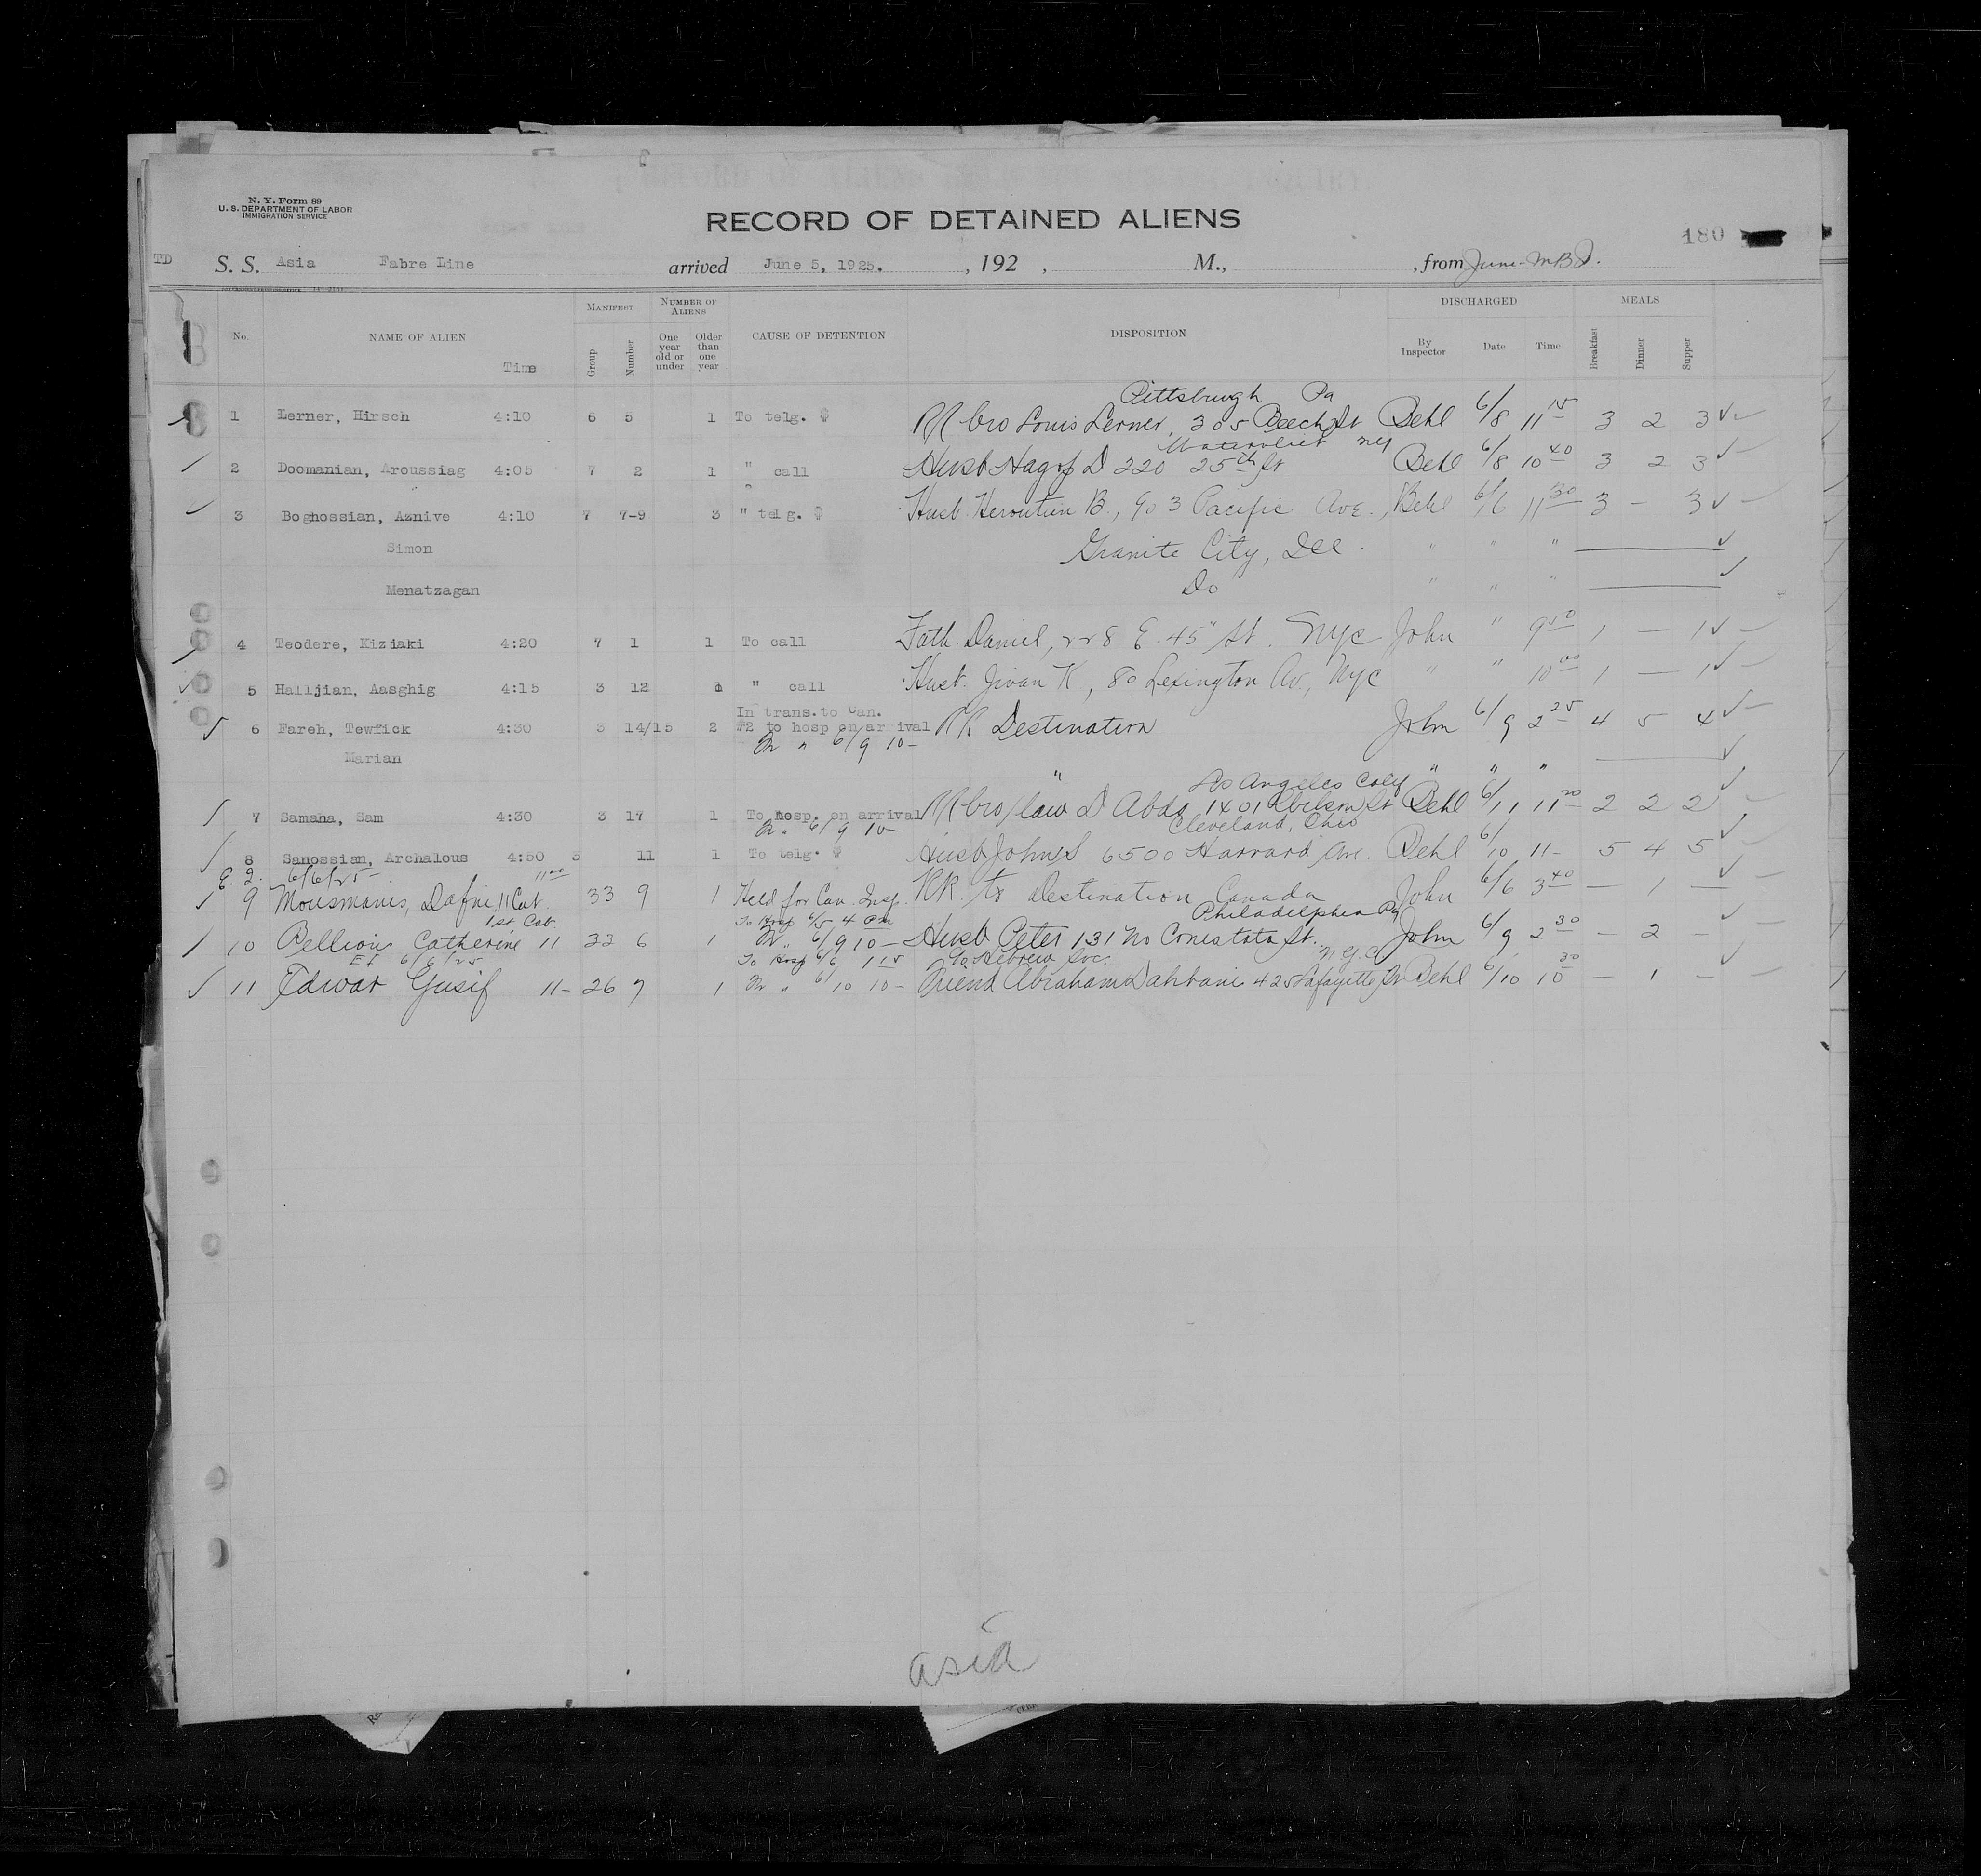 N. Y. Form 89
U. S. DEPARTMENT OF LABOR
IMMIGRATION SERVICE
RECORD OF DETAINED ALIENS
180
TD S. S. Asia Fabre Line arrived June 5, 1925. , 192 , M., , from
No. NAME OF ALIEN Time MANIFEST Group Number NUMBER OF ALIENS One year old or under Older than one year CAUSE OF DETENTION DISPOSITION DISCHARGED By Inspector Date Time MEALS Breakfast Dinner Supper
Pittsburgh Pa
1 Lerner, Hirsch 4:10 6 5 1 To telg. RR bro Louis Lerner, 305 Beech St Behl 6/8 11 15 3 2 3 ✓
Watervliet NY
2 Doomanian, Aroussiag 4:05 7 2 1 " call Husb Hagop D 220 25th St Behl 6/8 10 40 3 2 3 ✓
3 Boghossian, Aznive 4:10 7 7-9 3 " telg. Husb. Heroutiun B., 903 Pacific Ave., Behl 6/6 11 30 3 — 3 ✓
Simon Granite City, Ill. " " " ✓
Menatzagan Do " " " ✓
4 Teodere, Kiziaki 4:20 7 1 1 To call Fath Daniel, 228 E. 45" St. NYC John " 9 50 1 — 1 ✓
5 Halljian, Aasghig 4:15 3 12 1 " call Husb. Jivan K., 80 Lexington Av., NYC " " 10 00 1 — 1 ✓
In trans. to Can.
6 Fareh, Tewfick 4:30 3 14/15 2 #2 to hosp on arrival RR Destination John 6/9 2 25 4 5 4 ✓
" 6/9 10-
Marian " " " " ✓
Los Angeles Calif
7 Samaha, Sam 4:30 3 17 1 To hosp. on arrival RR bro/law D Abda 1401 Wilson St Behl 6/11 11 20 2 2 2 ✓
" 6/9 10-
Cleveland, Ohio
8 Sanossian, Archalous 4:50 3 11 1 To telg. Husb John S 6500 Harvard Ave. Behl 6/10 11- 5 4 5 ✓
6/6/25- 11 00
9 Mousmanis, Dafni, 11 Cat. 33 9 1 Held for Can. Insp. RR to Destination Canada John 6/6 3 40 — 1 — ✓
1st Cab. To Hosp 6/5 4 PM Philadelphia Pa
10 Pellion Catherine 11 33 6 1 " 6/9 10- Husb Peter 131 No Conestota St. John 6/9 2 30 — 2 — ✓
6/6/25 To Hosp 6/6 1 15 To Hebrew Soc. N.Y.C
11 Edwar Yusif 11- 26 7 1 " 6/10 10- Friend Abraham Dahtani 425 Lafayette St Behl 6/10 10 30 — 1 — ✓
Asia